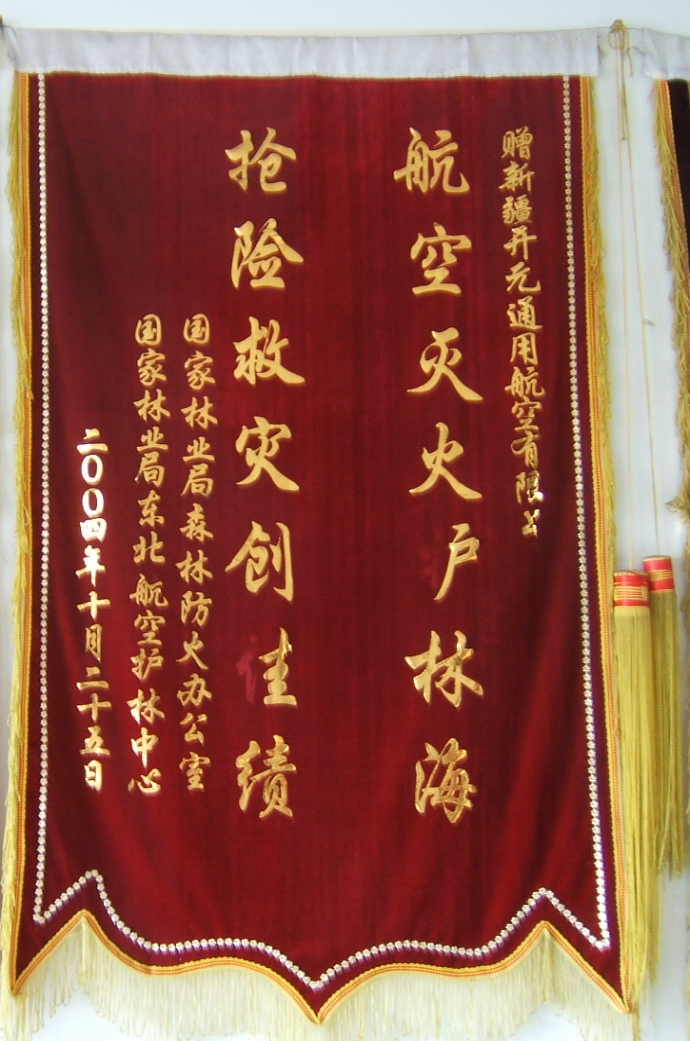 赠新疆开元通用航空有限公
航空灭火户林海
抢险救灾创佳绩
国家林业局森林防火办公室
国家林业局东北航空护林中心
二〇〇四年十月二十五日